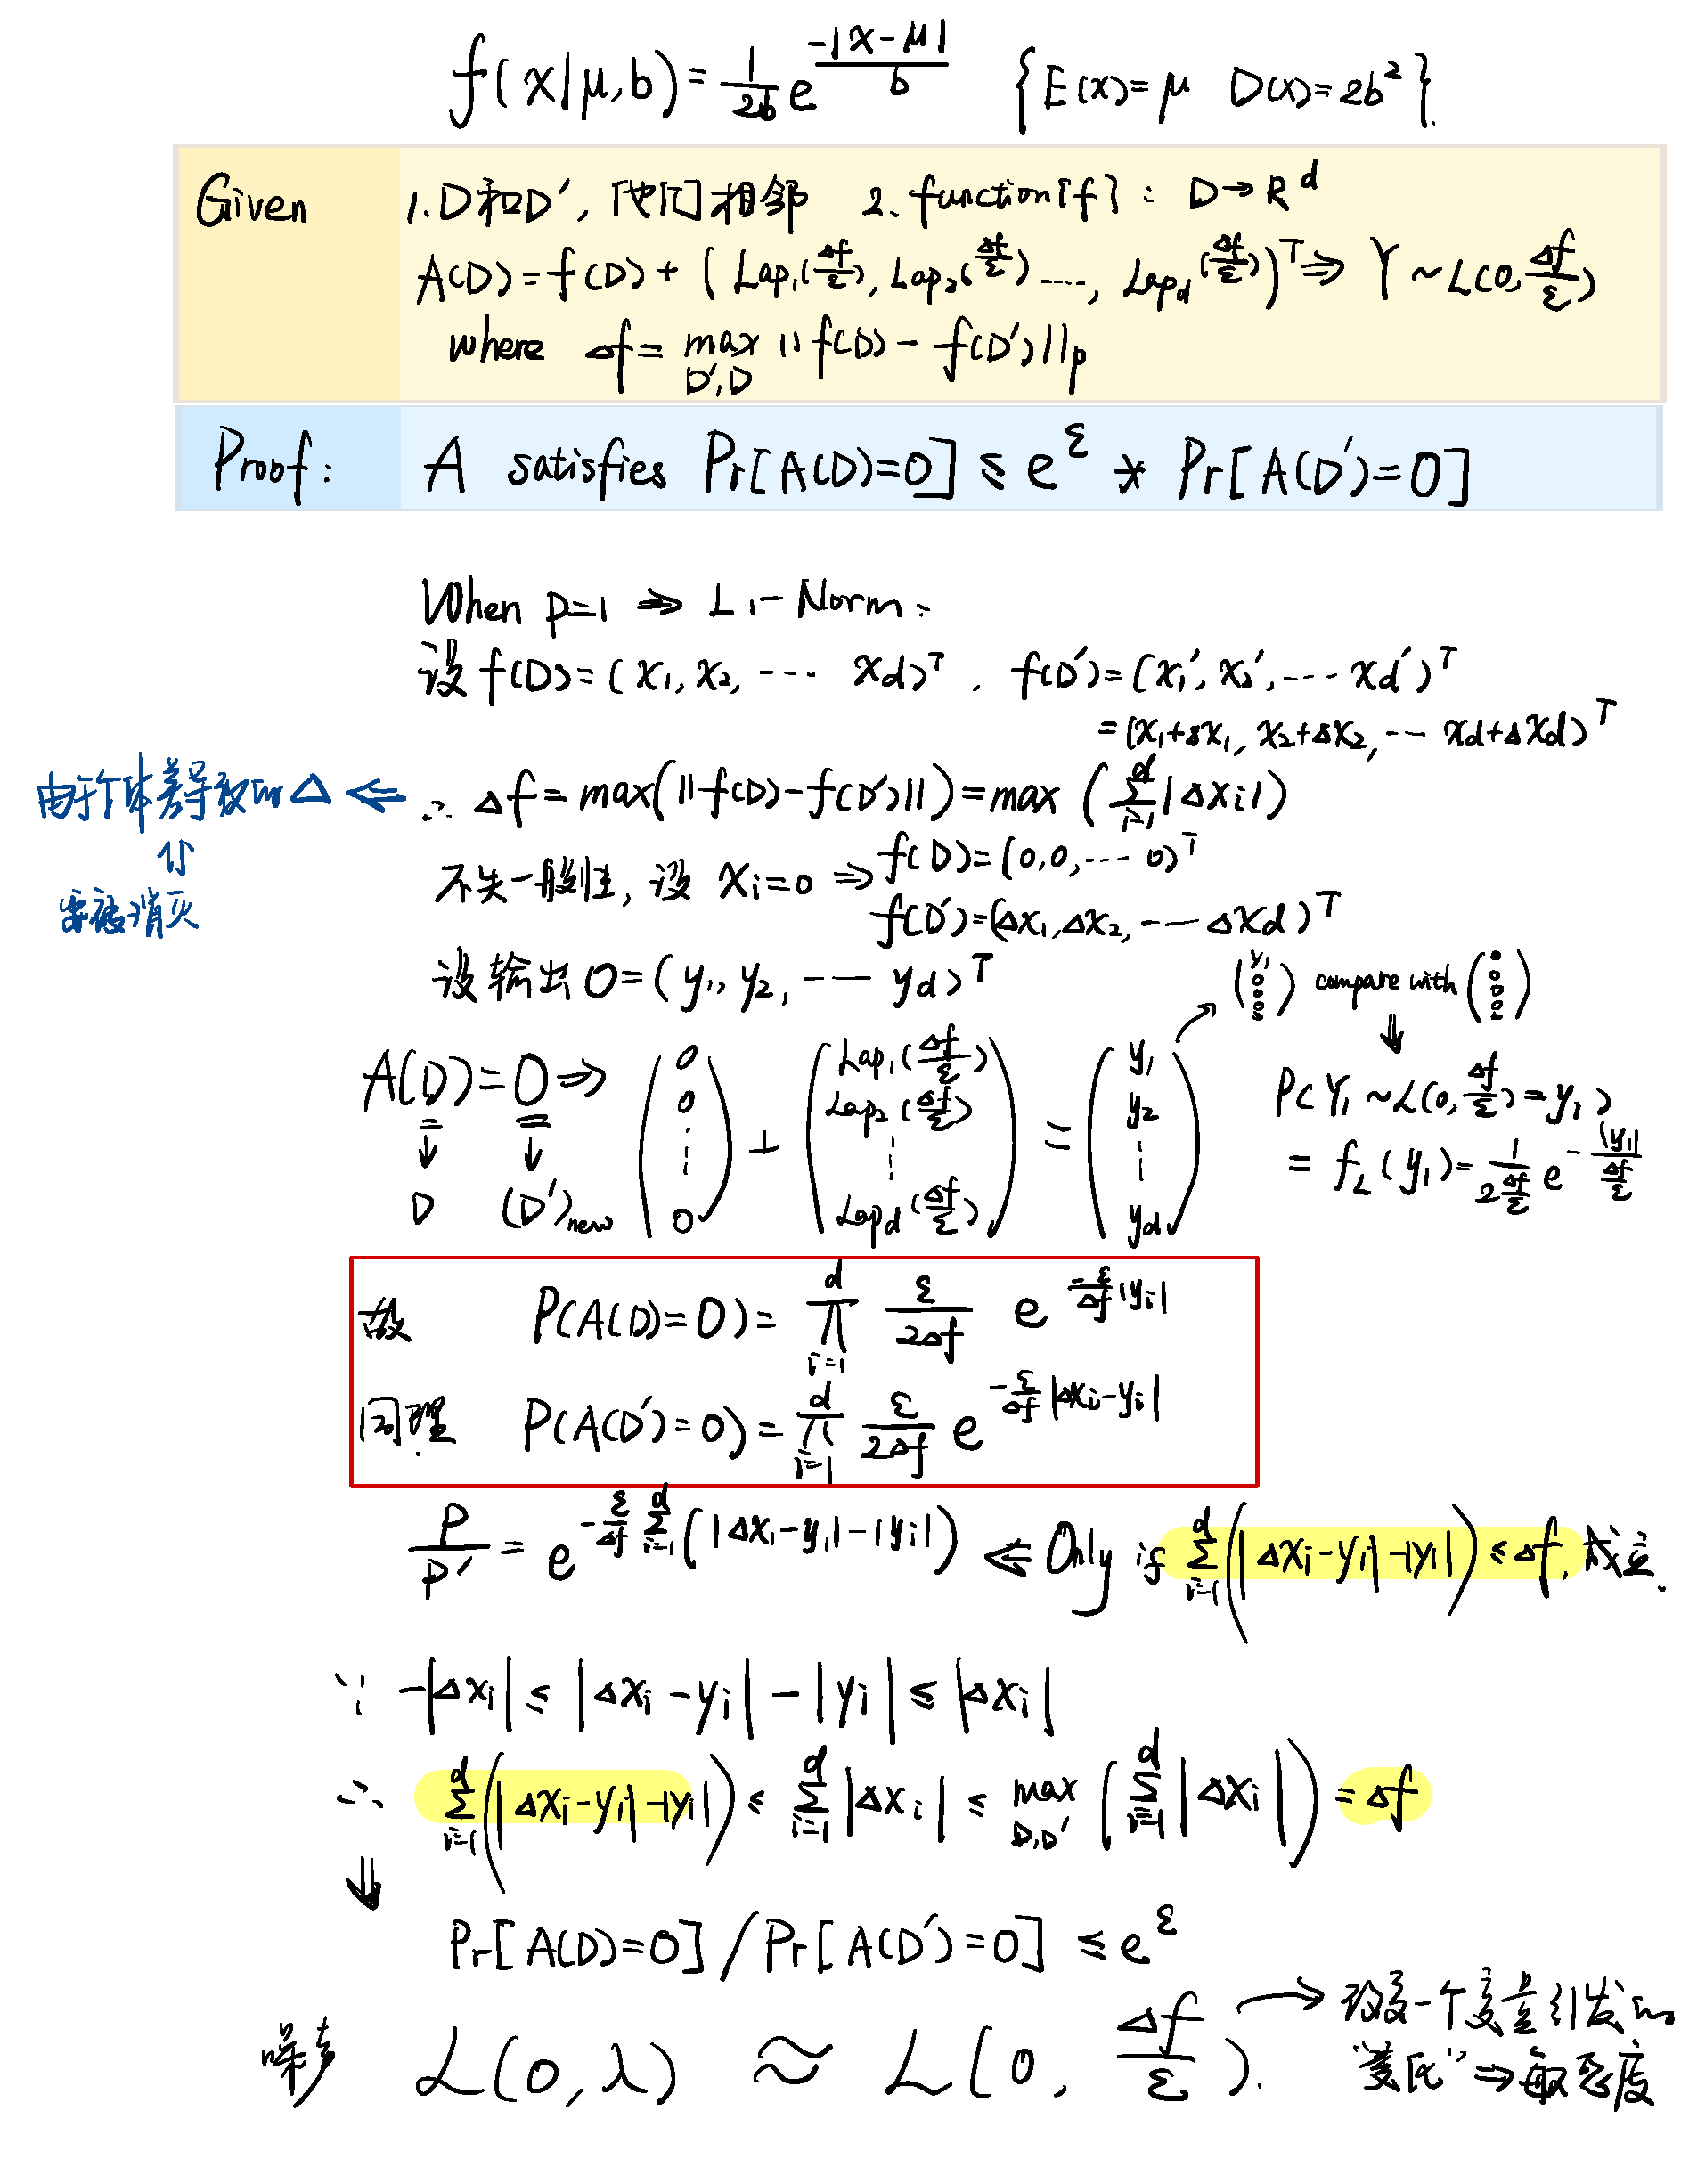 f(x|μ,b) = 1/2b e^(-|x-μ|/b) {E(x)=μ D(x)=2b²}.
Given
1. D和D′, 他们相邻 2. function[f] : D→R^d
A(D) = f(D) + (Lap₁(Δf/ε), Lap₂(Δf/ε) ----, Lap_d(Δf/ε))^T ⇒ Y ~ L(0, Δf/ε)
where Δf = max_{D′,D} ||f(D) - f(D′)||_p
Proof: A satisfies Pr[A(D)=O] ≤ e^ε * Pr[A(D′)=O]
When p=1 ⇒ L1-Norm.
设 f(D) = (x₁, x₂, ---- x_d)^T, f(D′) = (x₁′, x₂′, ---- x_d′)^T
= (x₁+Δx₁, x₂+Δx₂, --- x_d+Δx_d)^T
由于个体差导致的Δ ⇐ ∴ Δf = max(||f(D)-f(D′)||) = max(∑_{i=1}^d |Δx_i|)
⇑
要被消灭
不失一般性, 设 x_i=0 ⇒ f(D) = (0,0,---- 0)^T
f(D′) = (Δx₁, Δx₂, ---- Δx_d)^T
设输出 O = (y₁, y₂, ---- y_d)^T
(y₁ 0 0 0 0) compare with (0 0 0 0 0)
⇓
A(D) = O ⇒ (0 0 ⋮ 0) + (Lap₁(Δf/ε) Lap₂(Δf/ε) ⋮ Lap_d(Δf/ε)) = (y₁ y₂ ⋮ y_d)
↓ ↓
D (D′)_new
P(Y₁ ~ L(0, Δf/ε) = y₁)
= f_L(y₁) = 1/(2 Δf/ε) e^(-|y₁|/(Δf/ε))
故 P(A(D)=O) = ∏_{i=1}^d ε/2Δf e^(-ε/Δf |y_i|)
同理 P(A(D′)=O) = ∏_{i=1}^d ε/2Δf e^(-ε/Δf |Δx_i-y_i|)
P/P′ = e^(-ε/Δf ∑_{i=1}^d (|Δx_i-y_i|-|y_i|)) ⇐ Only if ∑_{i=1}^d (|Δx_i-y_i|-|y_i|) ≤ Δf, 成立.
∵ -|Δx_i| ≤ |Δx_i - y_i| - |y_i| ≤ |Δx_i|
∴ ∑_{i=1}^d (|Δx_i-y_i|-|y_i|) ≤ ∑_{i=1}^d |Δx_i| ≤ max_{D,D′} (∑_{i=1}^d |Δx_i|) = Δf
⇓
Pr[A(D)=O] / Pr[A(D′)=O] ≤ e^ε
噪声 L(0, λ) ≈ L(0, Δf/ε).
→ 改变一个变量引发的
"差氏" ⇒ 敏感度